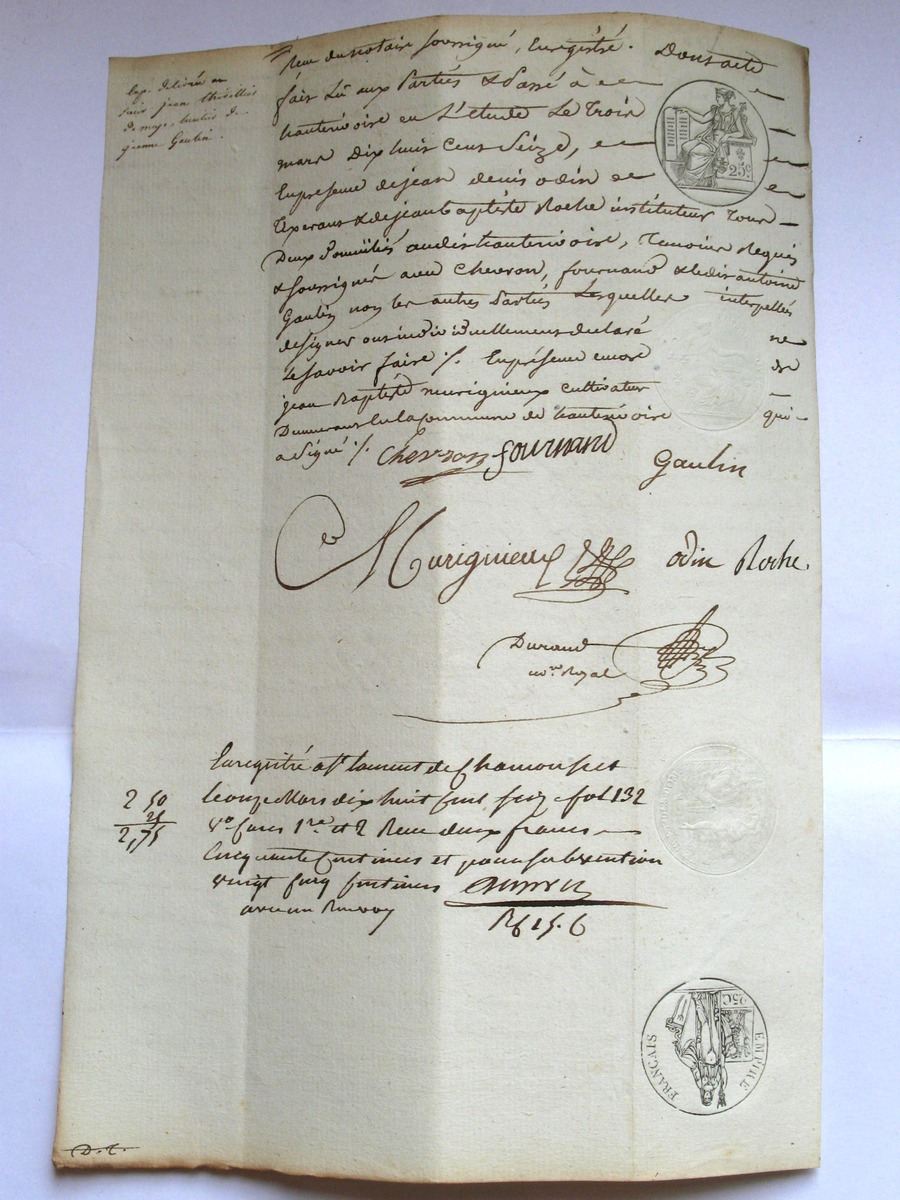 Exp. délivrée au
jean
Gaulin
Rue du notaire soussigné, Enregistré. Dont acte
fais Lû aux Parties & Passé à
hauterivoire en L'étude Le Trois
mars Dix huis Cens Seize,
Enpresense de jean denis odin
& de jean Baptiste Roche instituteur Tous
Deux Domiciliés audis hauterivoire, Temoins Requis
& soussignés avec Chevron, fournand & ledis antoine
Gaulin non les autres Parties Lesquelles interpellés
de signer ons individuellemens declaré ne
Le savoir faire ·/. Enprésense encore de
jean Baptiste murigneux cultivateur
Demeurans en la commune de hauterivoire qui
a Signé ·/.
Chevron fournand
Gaulin
Murigneux odin Roche.
Durand
no.re Royal
Enregistré a St laurent de Chamousset
le onze Mars dix huit Cent seize fol 132
vo Cases 1re et 2 Reçu deux francs
Cinquante Centimes et pour subvention
vingt Cinq Centimes
avec un Renvoy
2 50
25
2,75
Rf 15.6
25c
25C
EMPIRE
FRANÇAIS
D. T.